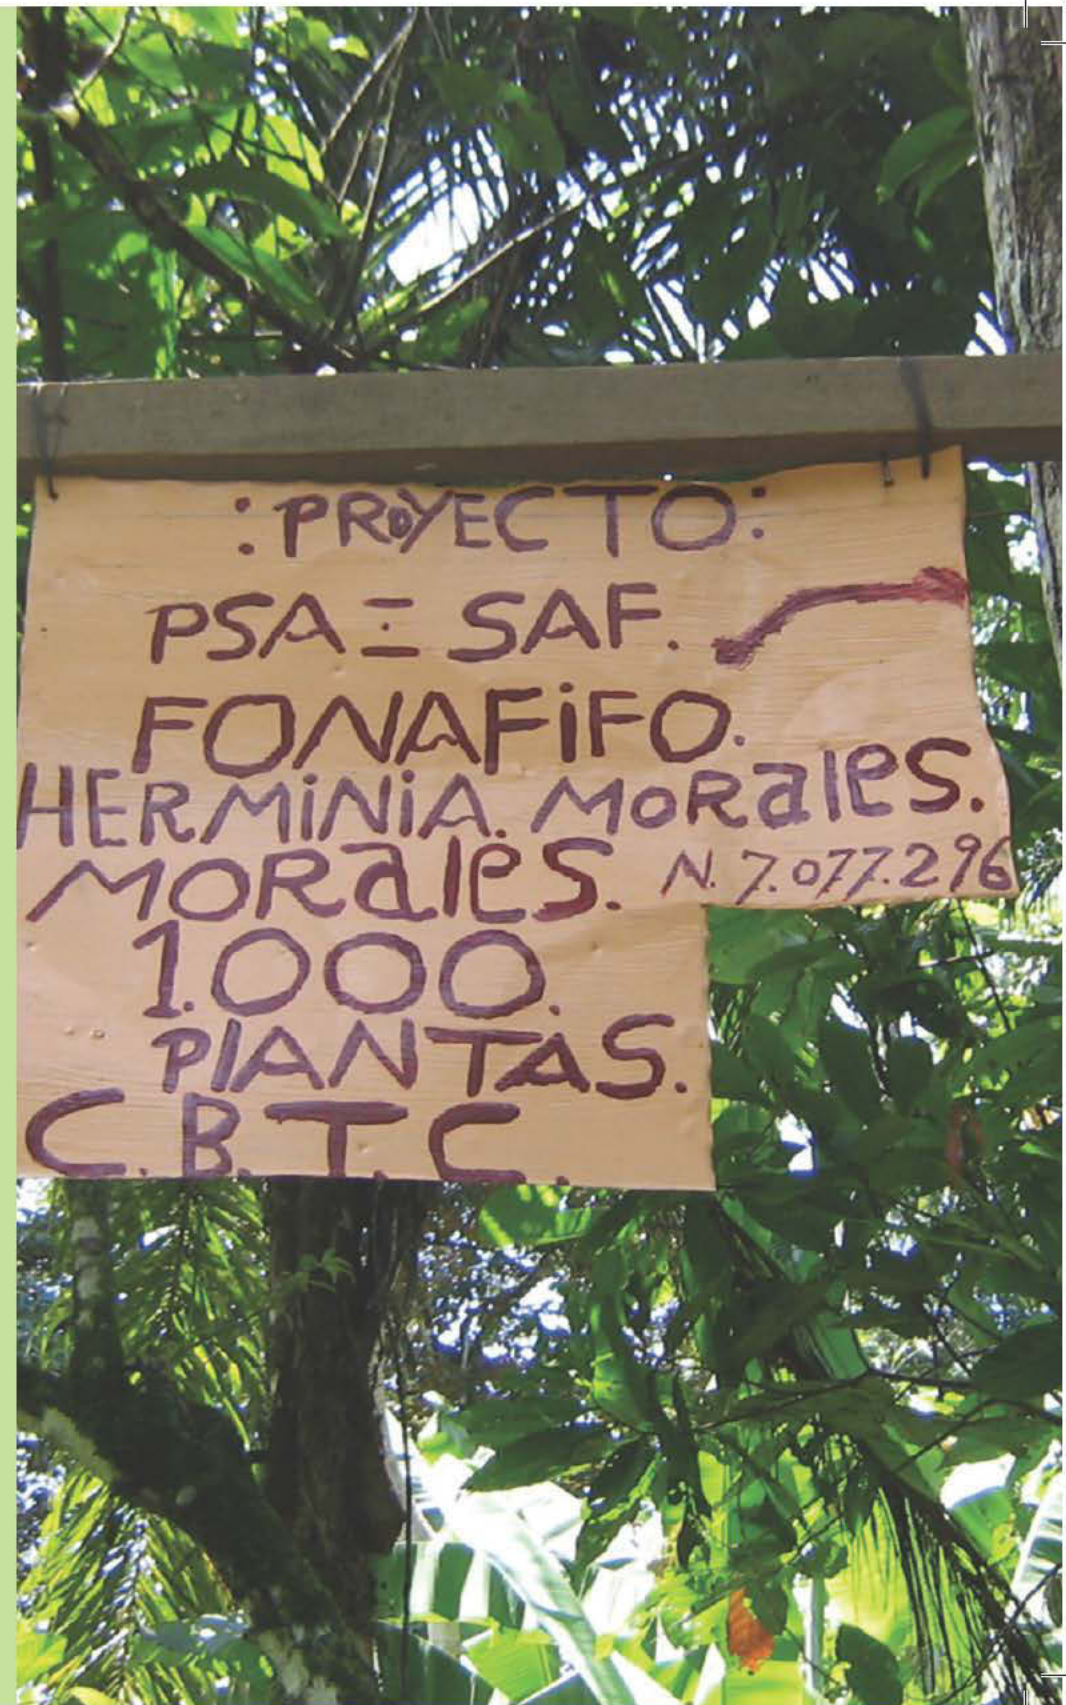 :PROYECTO:
PSA = SAF.
FONAFiFO.
HERMiNiA. MORales.
MORales. N. 7.077.296
1.000.
PlANTAS.
C.B.T.C.